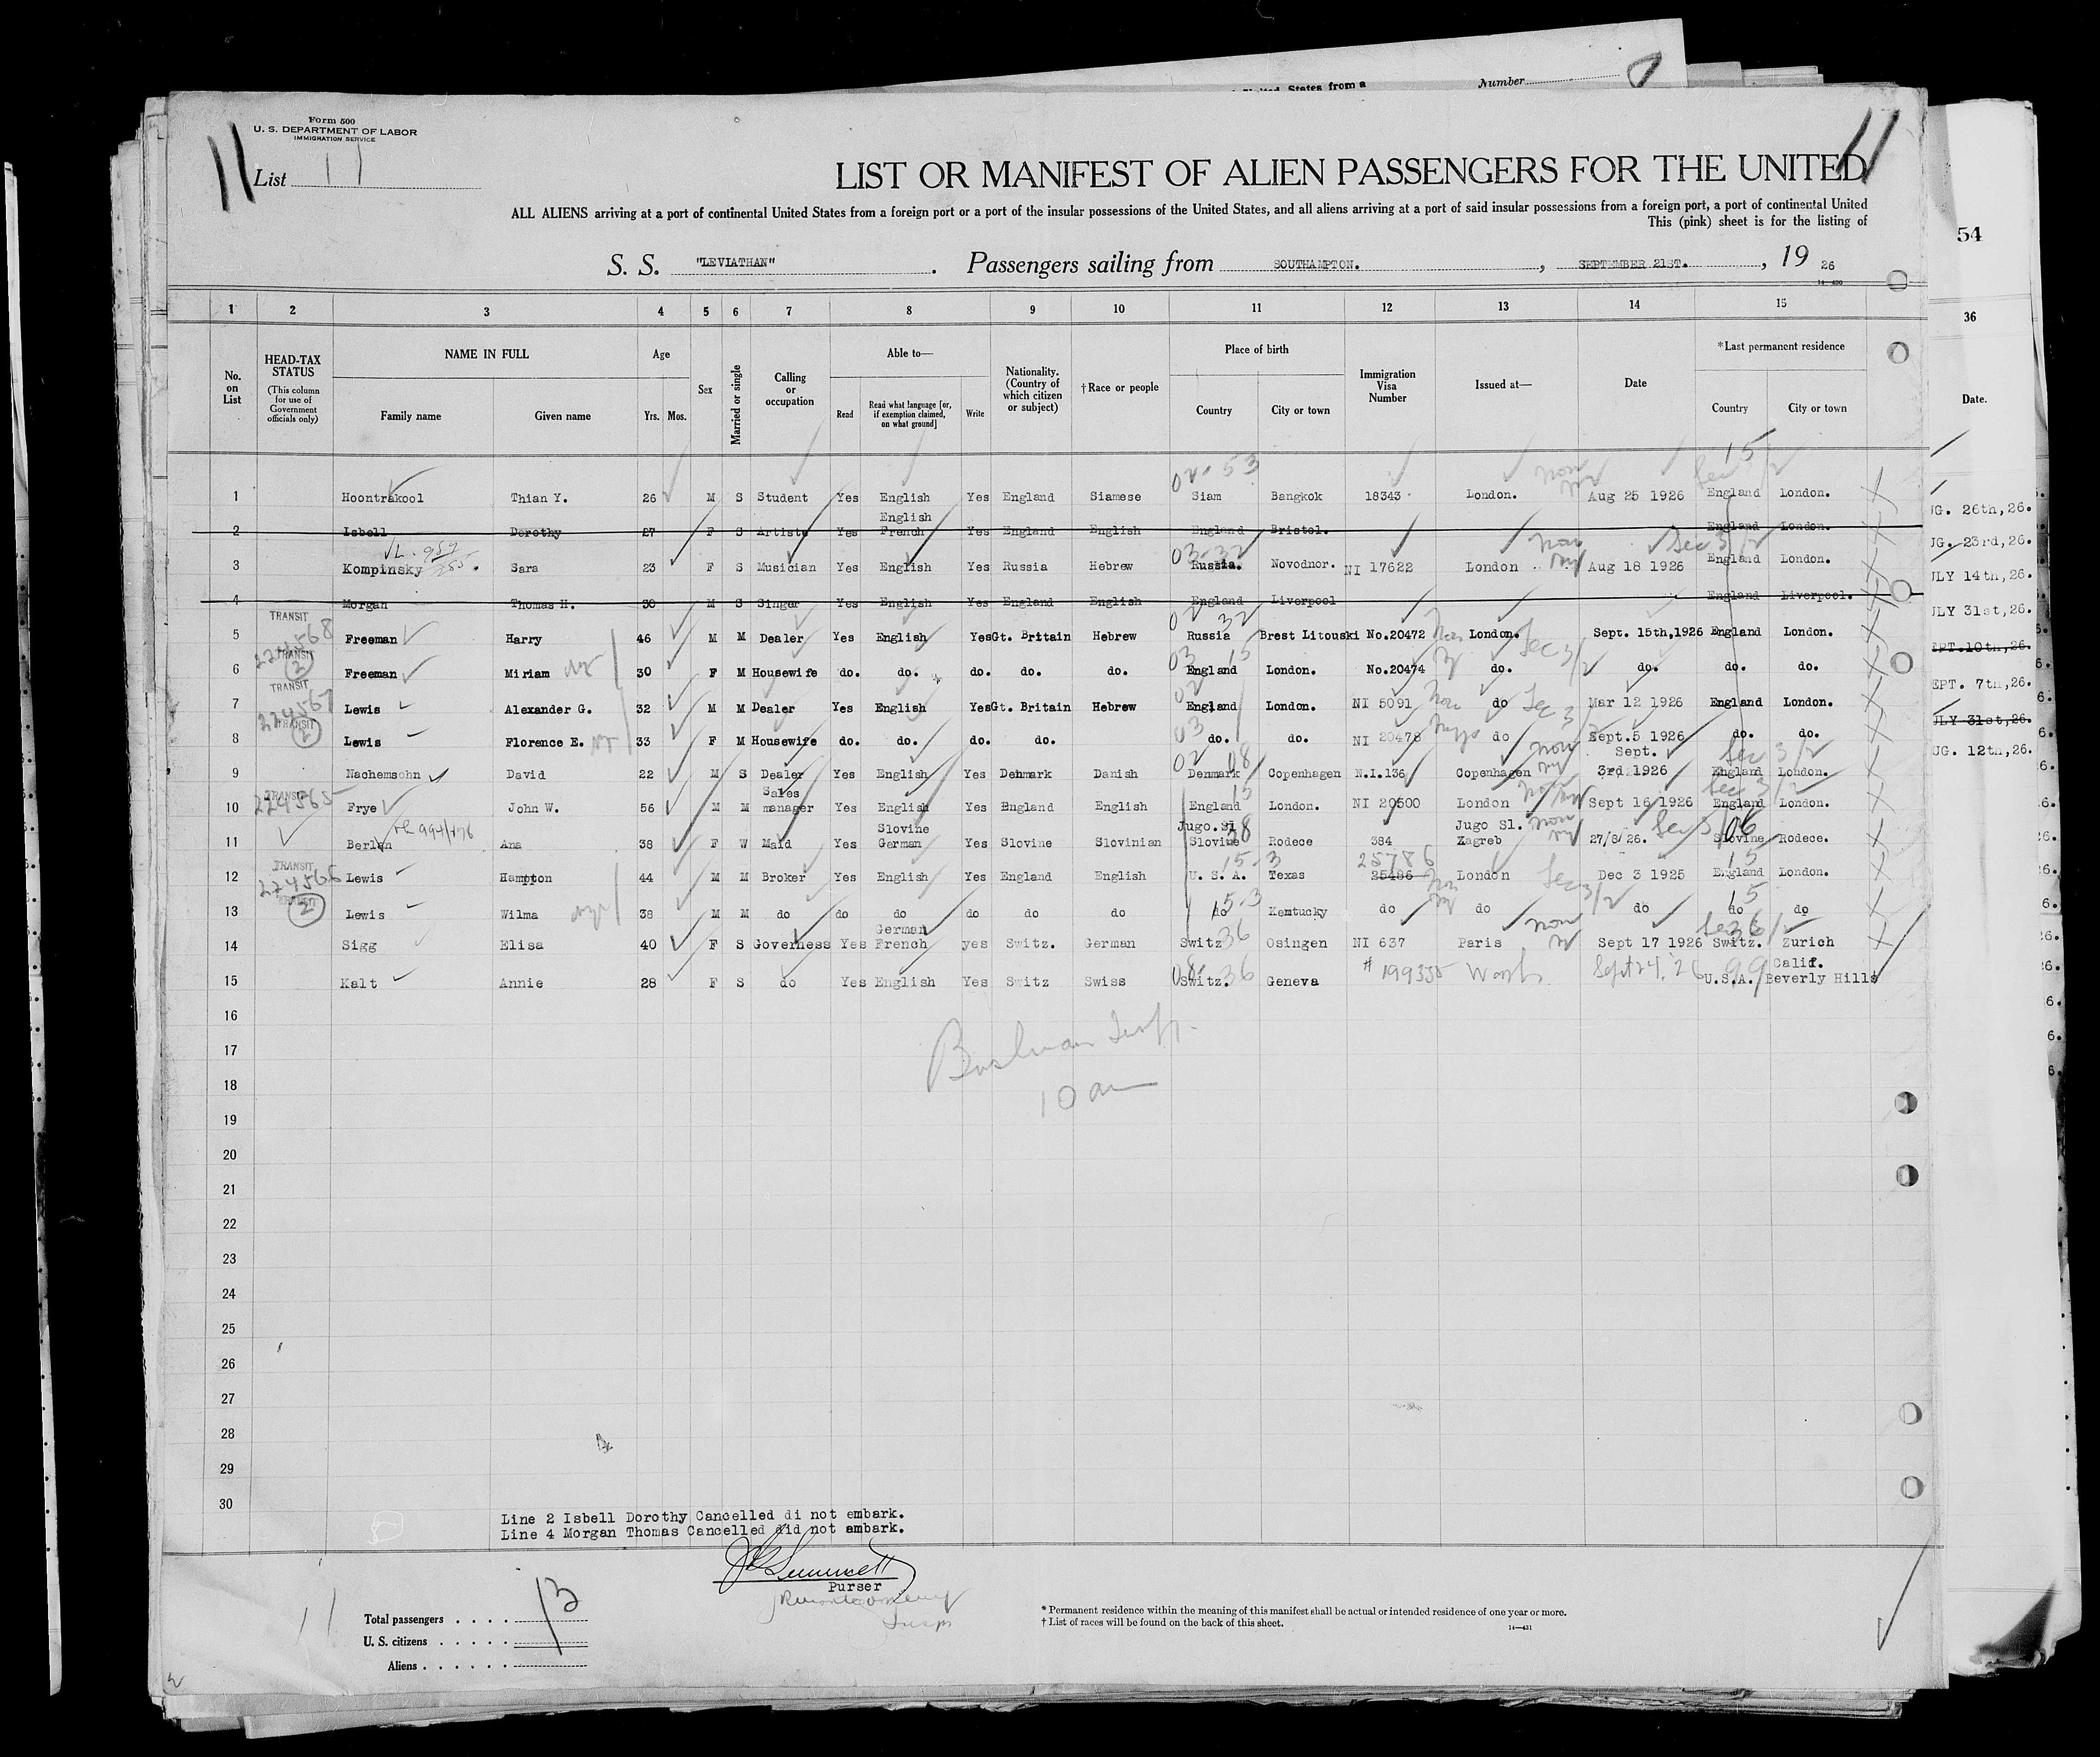 United States from a
Number
Form 500
U. S. DEPARTMENT OF LABOR
IMMIGRATION SERVICE
11
11
List 11
LIST OR MANIFEST OF ALIEN PASSENGERS FOR THE UNITED
ALL ALIENS arriving at a port of continental United States from a foreign port or a port of the insular possessions of the United States, and all aliens arriving at a port of said insular possessions from a foreign port, a port of continental United
This (pink) sheet is for the listing of
54
S. S. "LEVIATHAN". Passengers sailing from SOUTHAMPTON., SEPTEMBER 21ST., 19 26
14—430
1 2 3 4 5 6 7 8 9 10 11 12 13 14 15 36
No. on List
HEAD-TAX STATUS (This column for use of Government officials only)
NAME IN FULL Family name Given name
Age Yrs. Mos.
Sex
Married or single
Calling or occupation
Able to— Read Read what language [or, if exemption claimed, on what ground] Write
Nationality. (Country of which citizen or subject)
†Race or people
Place of birth Country City or town
Immigration Visa Number
Issued at—
Date
*Last permanent residence Country City or town
Date.
1 Hoontrakool Thian Y. 26 M S Student Yes English Yes England Siamese 02-53 Siam Bangkok 18343 London. Aug 25 1926 15 England London.
2 Isbell Dorothy 27 F S Artiste Yes English French Yes England English England Bristol. England London.
3 Kompinsky. Sara 23 F S Musician Yes English Yes Russia Hebrew 03-32 Russia. Novodnor. NI 17622 London Aug 18 1926 Sec 3/2 England London.
4 Morgan Thomas H. 30 M S Singer Yes English Yes England English England Liverpool England Liverpool.
5 TRANSIT 224568 Freeman Harry 46 M M Dealer Yes English Yes Gt. Britain Hebrew 02 32 Russia Brest Litouski No.20472 London. Sec 3/2 Sept. 15th,1926 England London.
6 TRANSIT 2 Freeman Miriam 30 F M Housewife do. do. do. do. do. 03 15 England London. No.20474 do. do. do. do.
7 TRANSIT 224567 Lewis Alexander G. 32 M M Dealer Yes English Yes Gt. Britain Hebrew 02 England London. NI 5091 do Sec 3/2 Mar 12 1926 England London.
8 TRANSIT 2 Lewis Florence E. 33 F M Housewife do. do. do. do. 03 do. do. NI 20478 do Sept.5 1926 do. do.
9 Nachemsohn David 22 M S Dealer Yes English Yes Denmark Danish 02 08 Denmark Copenhagen N.I.136 Copenhagen Sept. 3rd 1926 Sec 3/2 England London.
10 TRANSIT 224565 Frye John W. 56 M M Sales manager Yes English Yes England English 15 England London. NI 20500 London Sept 16 1926 Sec 3/2 England London.
11 Berlan Ana 38 F W Maid Yes Slovine German Yes Slovine Slovinian Jugo.Sl Slovine Rodece 384 Jugo Sl. Zagreb 27/8/26. 06 Slovine Rodece.
12 TRANSIT 224566 Lewis Hampton 44 M M Broker Yes English Yes England English 15-3 U. S. A. Texas 25786 25486 London Dec 3 1925 15 England London.
13 2 Lewis Wilma 38 M M do do do do do do 15-3 do Kentucky do do do 15 do do
14 Sigg Elisa 40 F S Governess Yes German French yes Switz. German 36 Switz Osingen NI 637 Paris Sept 17 1926 Switz. Zurich
15 Kalt Annie 28 F S do Yes English Yes Switz Swiss 08-36 Switz. Geneva Wash Sept 24, 26 99 U.S.A. Calif. Beverly Hills
UG. 26th,26.
UG. 23rd,26.
ULY 14th,26.
ULY 31st,26.
EPT.10th,26.
EPT. 7th,26.
ULY 31st,26.
UG. 12th,26.
16
17
18
10 am
19
20
21
22
23
24
25
26
27
28
29
30
Line 2 Isbell Dorothy Cancelled di not embark.
Line 4 Morgan Thomas Cancelled did not embark.
Purser
11
Total passengers . . . . 13
U. S. citizens . . . . .
Aliens . . . . . .
* Permanent residence within the meaning of this manifest shall be actual or intended residence of one year or more.
† List of races will be found on the back of this sheet.
14—431